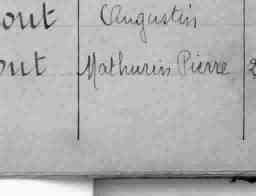 out Augustin
out Mathurin Pierre 2